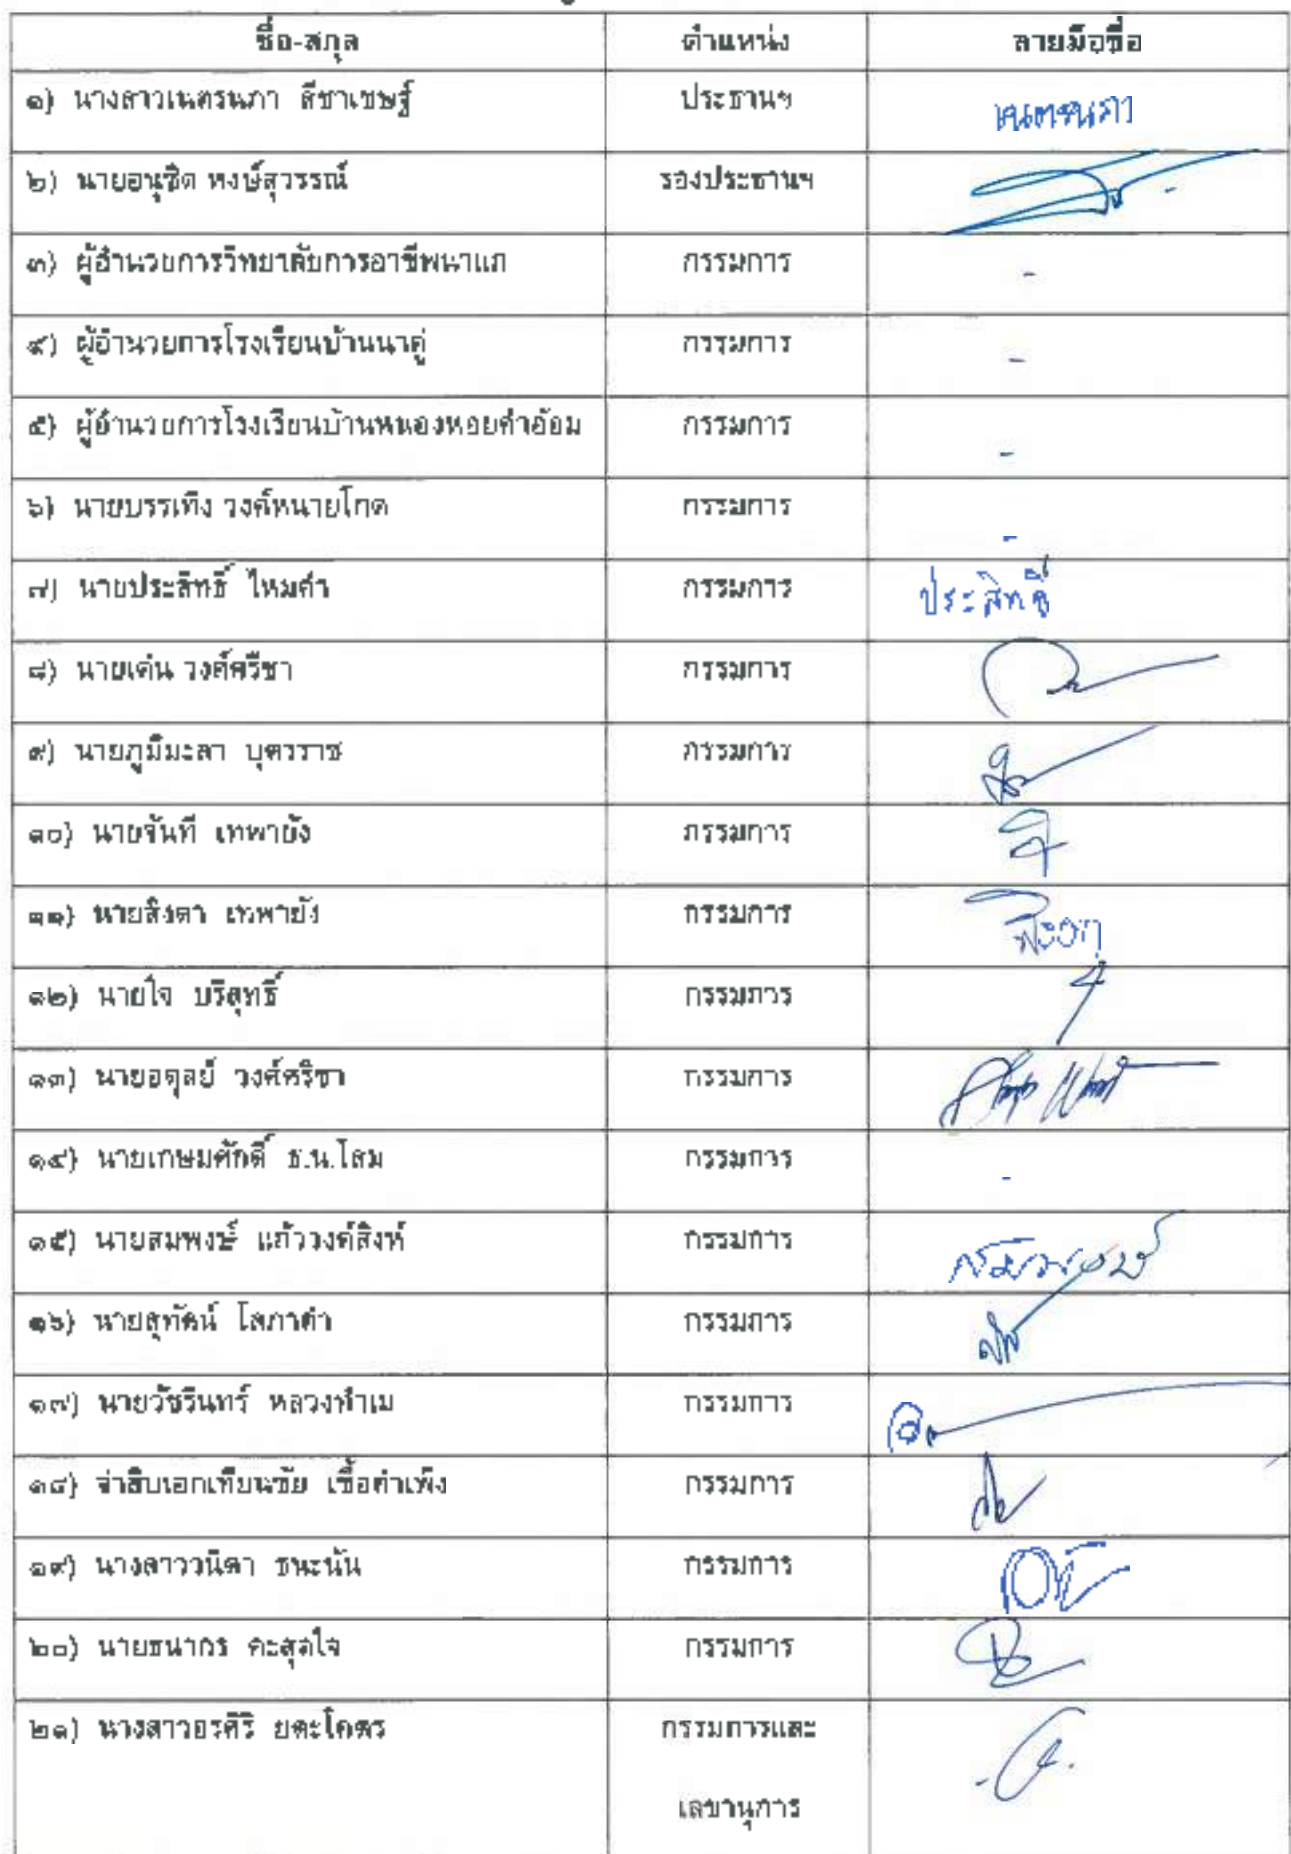 ชื่อ-สกุล ตำแหน่ง ลายมือชื่อ
๑) นางสาวเนตรนภา สีชาเชษฐ์ ประธานฯ เนตรนภา
๒) นายอนุชิต หงษ์สุวรรณ์ รองประธานฯ
๓) ผู้อำนวยการวิทยาลัยการอาชีพนาแก กรรมการ -
๔) ผู้อำนวยการโรงเรียนบ้านนาคู่ กรรมการ -
๕) ผู้อำนวยการโรงเรียนบ้านหนองหอยคำอ้อม กรรมการ -
๖) นายบรรเทิง วงค์หนายโกด กรรมการ -
๗) นายประสิทธิ์ ไหมคำ กรรมการ ประสิทธิ์
๘) นายเด่น วงศ์ศรีชา กรรมการ
๙) นายภูมีมะลา บุตรราช กรรมการ
๑๐) นายจันที เทพายัง กรรมการ
๑๑) นายสิงดา เทพายัง กรรมการ
๑๒) นายใจ บริสุทธิ์ กรรมการ
๑๓) นายอดุลย์ วงศ์ศรีชา กรรมการ
๑๔) นายเกษมศักดิ์ ธ.น.โสม กรรมการ -
๑๕) นายสมพงษ์ แก้ววงค์สิงห์ กรรมการ สมพงษ์
๑๖) นายสุทัศน์ โสภาคำ กรรมการ
๑๗) นายวัชรินทร์ หลวงทำเม กรรมการ
๑๘) จ่าสิบเอกเทียนชัย เชื้อคำเพ็ง กรรมการ
๑๙) นางสาววนิดา ธนะนัน กรรมการ
๒๐) นายธนากร คะสุดใจ กรรมการ
๒๑) นางสาวอรศิริ ยตะโคตร กรรมการและ
เลขานุการ